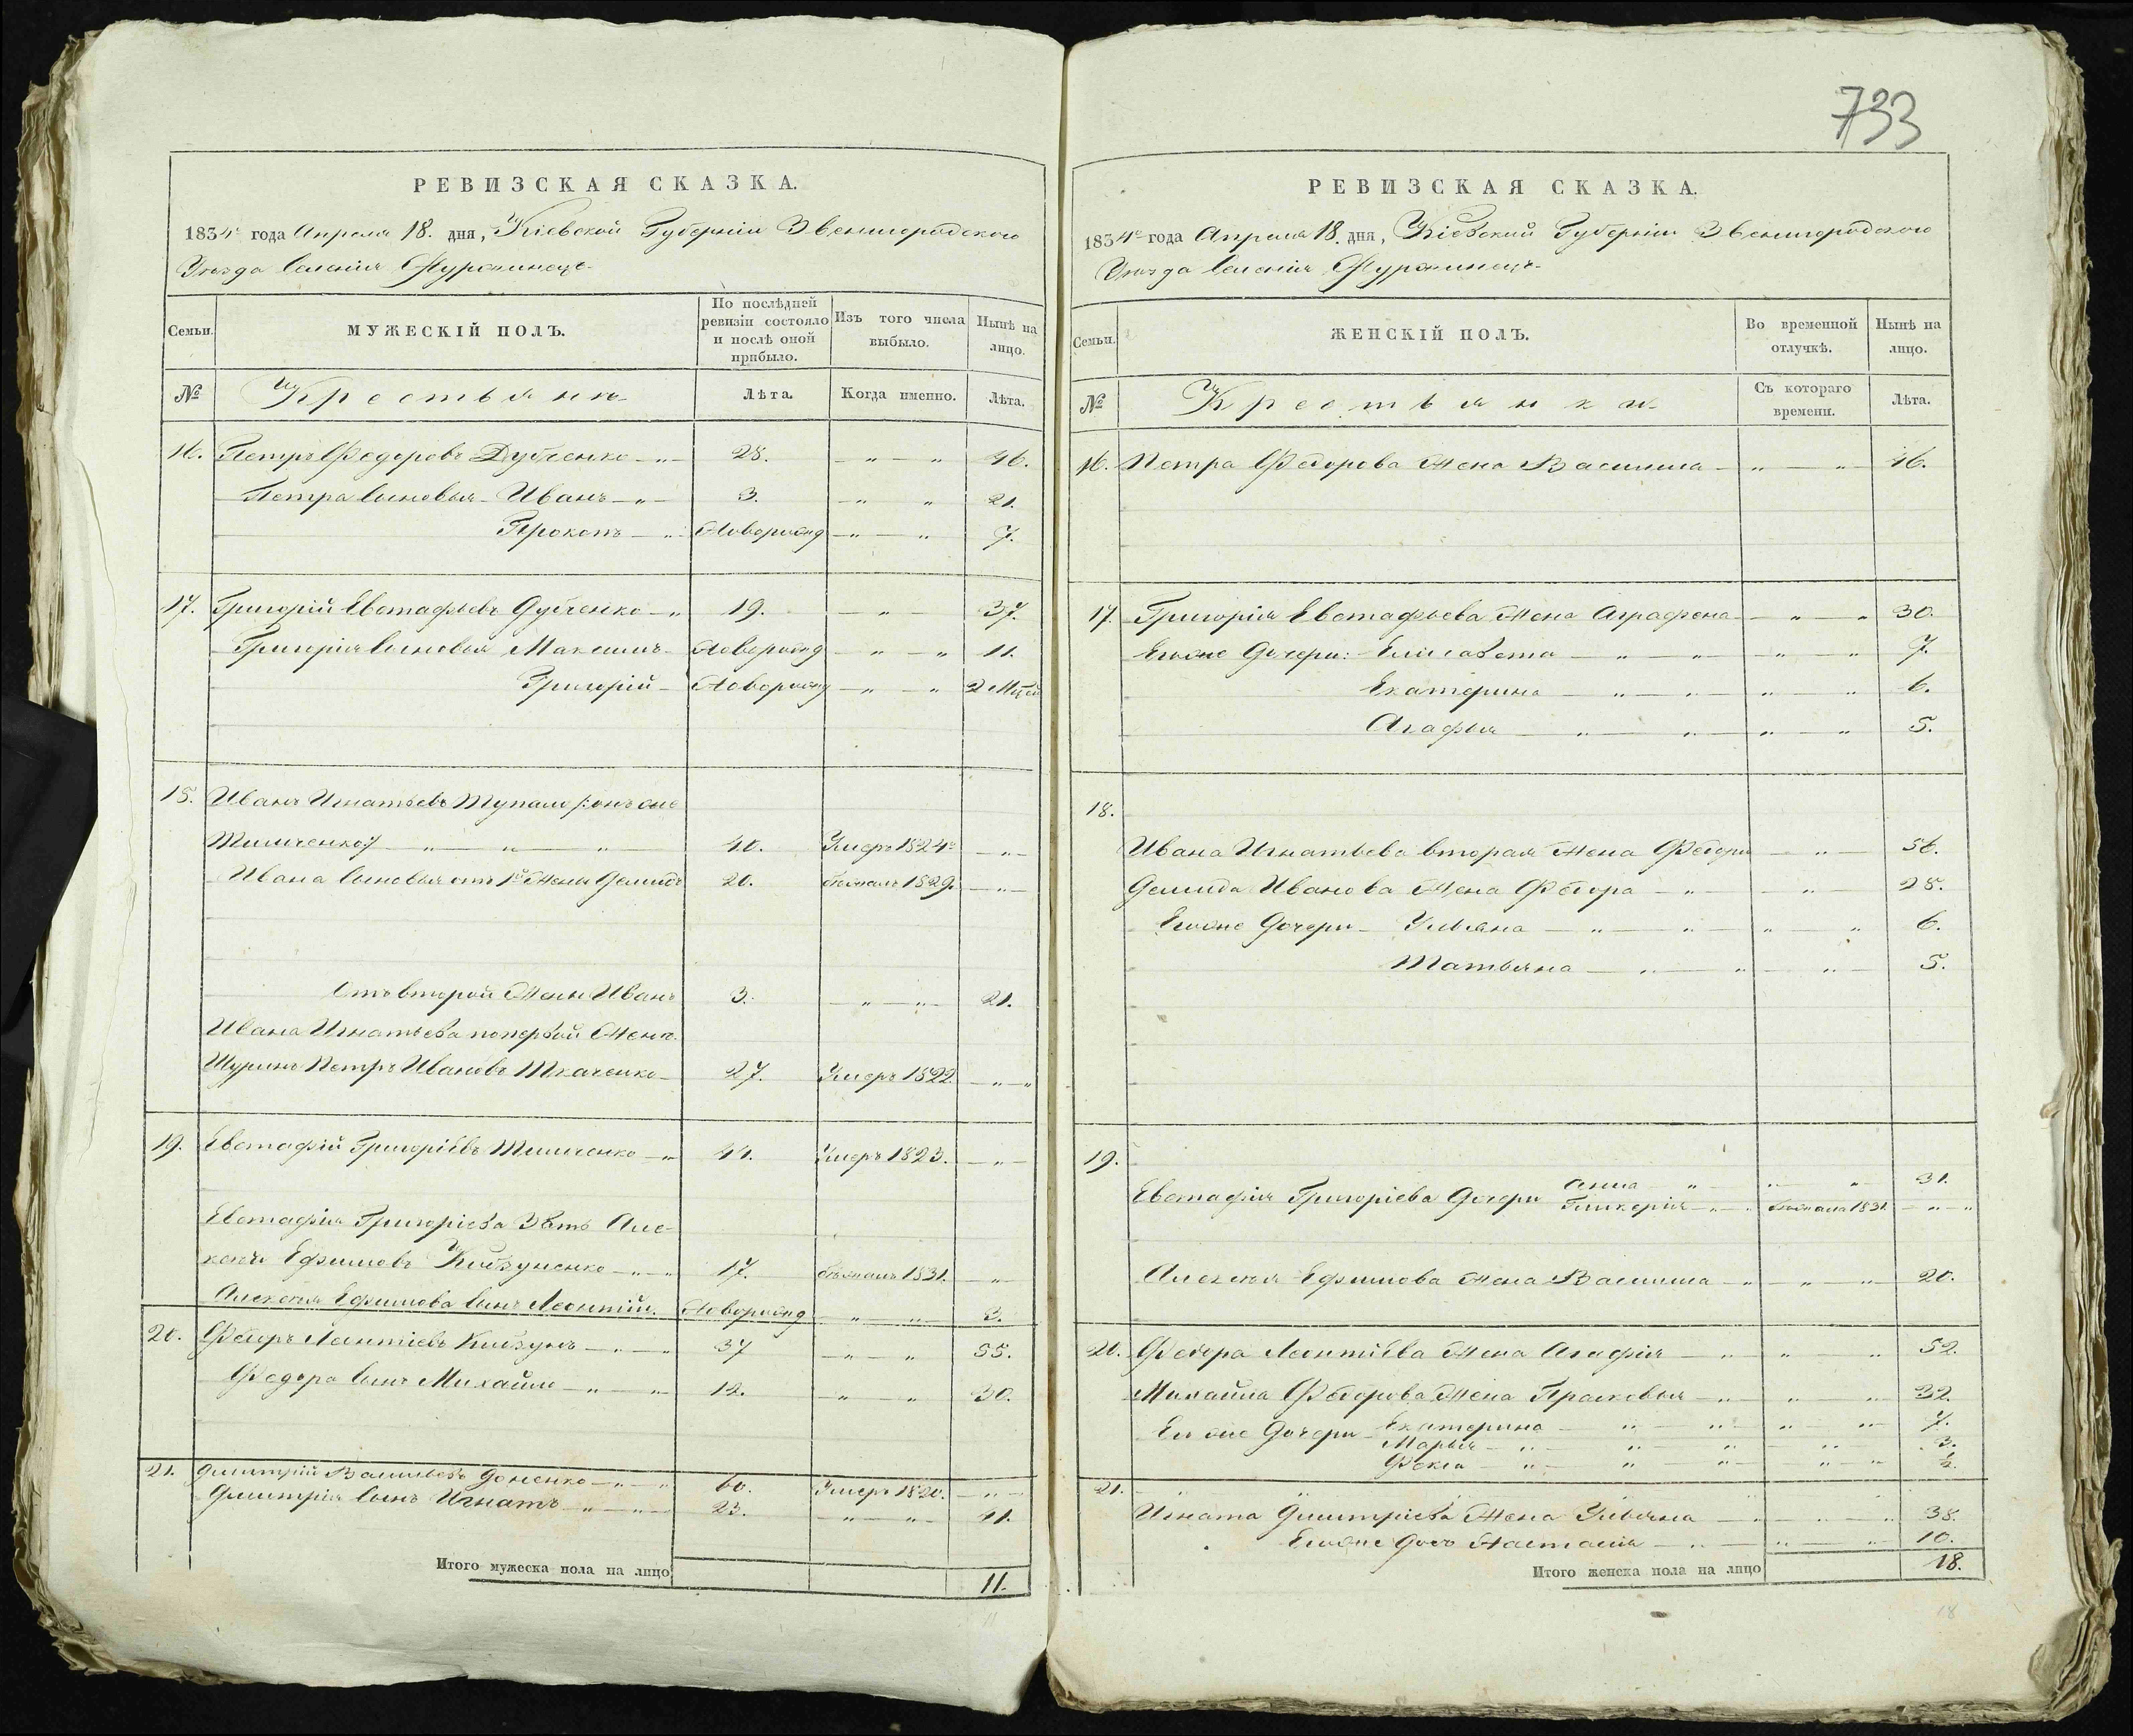 733
РЕВИЗСКАЯ СКАЗКА.
1834го года Апреля 18. дня, Кіевской Губерніи Звенигородского
Уезда Селенія Журжинецъ
Семьи.
МУЖЕСКІЙ ПОЛЪ.
По послѣдней ревизіи состояло и послѣ оной прибыло.
Изъ того числа выбыло.
Нынѣ на лицо.
№
Крестьяня
Лѣта.
Когда именно.
Лѣта.
16. Петръ Федоровъ Дубченко — „ — 28. — „ — „ 46.
Петра Сыновья Иванъ — „ — 3. — „ „ 21.
Прокопъ — „ Новорожд — „ — „ 7.
17. Григорій Евстафьевъ Дубченко — „ 19. — „ — 37.
Григорія Сыновья Максимъ Новорожд — „ — „ 11.
Григорій — Новорожд — „ — „ 2 Мцей
18. Иванъ Игнатьевъ
Тимченко — „ — „ — „ 40. Умеръ 1824го — „ —
Ивана Сыновья отъ 1й Жены Демидъ 20. бежалъ 1829. — „ —
Отъ второй Жены Иванъ 3. — „ — „ — 21.
Ивана Игнатьева по первой Жене
Шуринъ Петръ Ивановъ Ткаченко — 27. Умеръ 1822. — „ — „
19. Евстафій Григоріевъ Тимченко — „ 44. Умеръ 1823. — „ —
Евстафія Григоріева Зять Але-
ксей Ефимовъ — „ — „ 17. бежалъ 1831. — „ —
Алексея Ефимова Сынъ Леонтій. Новорожд — „ — „ — 3.
20. Федоръ Леонтіевъ — „ — „ 37 — „ — „ 55.
Федора Сынъ Михайло — „ — „ 12. — „ — „ 30.
21. Дмитрій Васильевъ Доненко — „ — „ 60. Умеръ 1820. — „ —
Дмитрія Сынъ Игнатъ — „ — „ 23. — „ — „ — 41.
Итого мужеска пола на лицо 11.
11
РЕВИЗСКАЯ СКАЗКА.
1834го года Апреля 18. дня, Кіевской Губерніи Звенигородского
Уезда Селенія Журжинецъ
Семьи.
ЖЕНСКІЙ ПОЛЪ.
Во временной отлучкѣ.
Нынѣ на лицо.
№
Крестьянки
Съ котораго времени.
Лѣта.
16. Петра Федорова Жена Василиса — „ — „ — 46.
17. Григорія Евстафьева Жена Аграфена — „ — „ 30.
Егоже Дочери: Елисавета — „ — „ — „ — „ 7.
Екатерина — „ — „ „ — „ 6.
Агафья — „ — „ — „ — „ 5.
18.
Ивана Игнатьева вторая Жена Федора — „ — 56.
Демида Иванова Жена Федора — „ — „ — 28.
Егоже Дочери Ульяна — „ — „ — „ — „ 6.
Татьяна — „ — „ — „ — 5.
19.
Евстафія Григоріева Дочери Анна — „ — „ — „ 31.
Гликерія — „ — „ бежала 1831. — „ — „
Алексея Ефимова Жена Василиса — „ — „ — „ — 20.
20. Федора Леонтіева Жена Агафія — „ — „ — „ 52.
Михайла Федорова Жена Прасковья — „ — „ — „ 32.
Егоже Дочери Екатерина — „ — „ — „ — „ 7.
Марья — „ — „ — „ — „ — 3.
Фекла — „ — „ „ — „ — „ ½.
21.
Игната Дмитріева Жена Ульяна — „ — „ — „ 38.
Егоже Дочь Настасія — „ — „ — „ 10.
Итого женска пола на лицо 18.
18